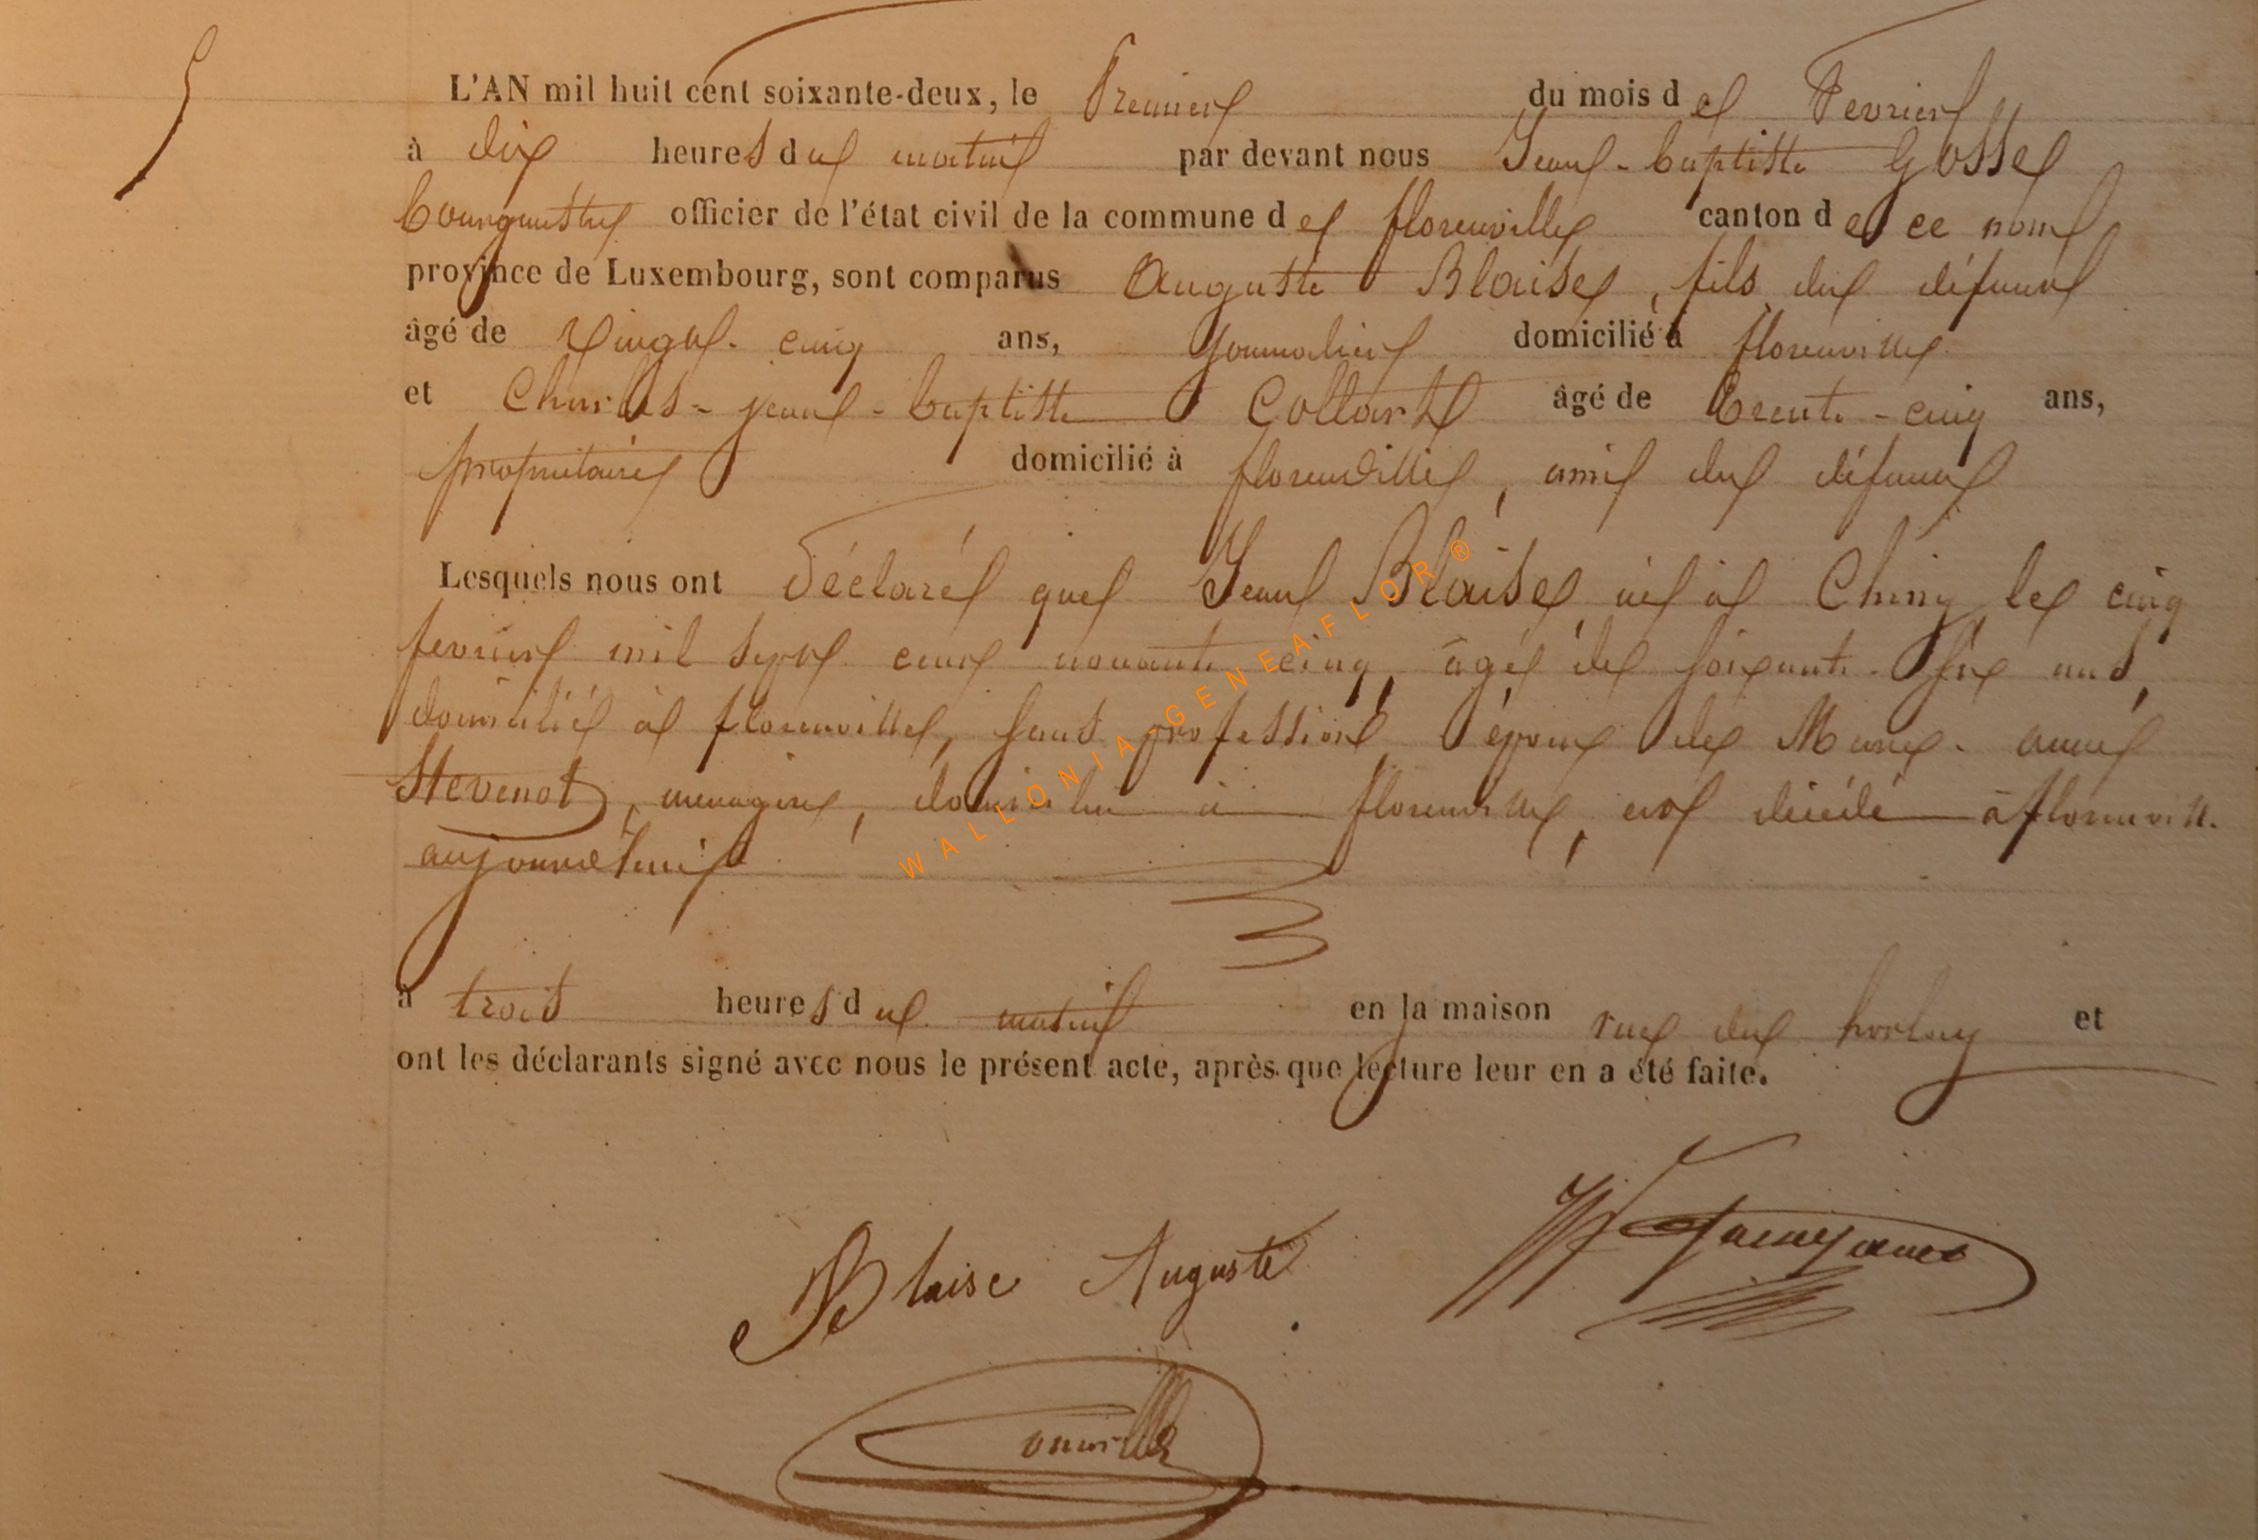 5
L'AN mil huit cent soixante-deux, le Premier du mois de Fevrier
à dix heures du matin par devant nous Jean-baptiste Gosse
bourgmestre officier de l'état civil de la commune de florenville canton de ce nom
province de Luxembourg, sont comparus Auguste Blaise, fils du défunt
âgé de Vingt-cinq ans, Journalier domicilié à florenville
et Charles-jean-baptiste Collart âgé de trente-cinq ans,
propriétaire domicilié à florenville, ami du défunt
Lesquels nous ont Déclaré que Jean Blaise, né à Chiny, le cinq
fevrier mil sept cent nonante cinq, âgé de soixante-six ans,
domicilié à florenville, sans profession, époux de Marie-anne
Stevenot, menagère, domiciliée à florenville, est décédé à florenville
aujourd'hui
à trois heures du matin en la maison rue du et
ont les déclarants signé avec nous le présent acte, après que lecture leur en a été faite.
Blaise Auguste
WALLONIA GENEAFLOR®